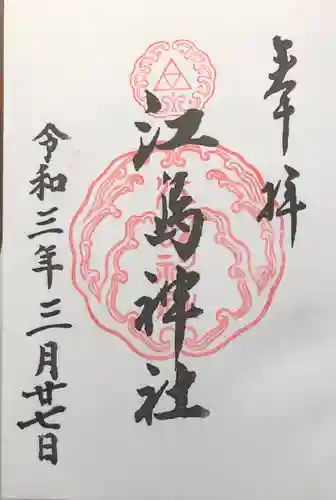 奉拝
江島神社
令和三年三月廿七日